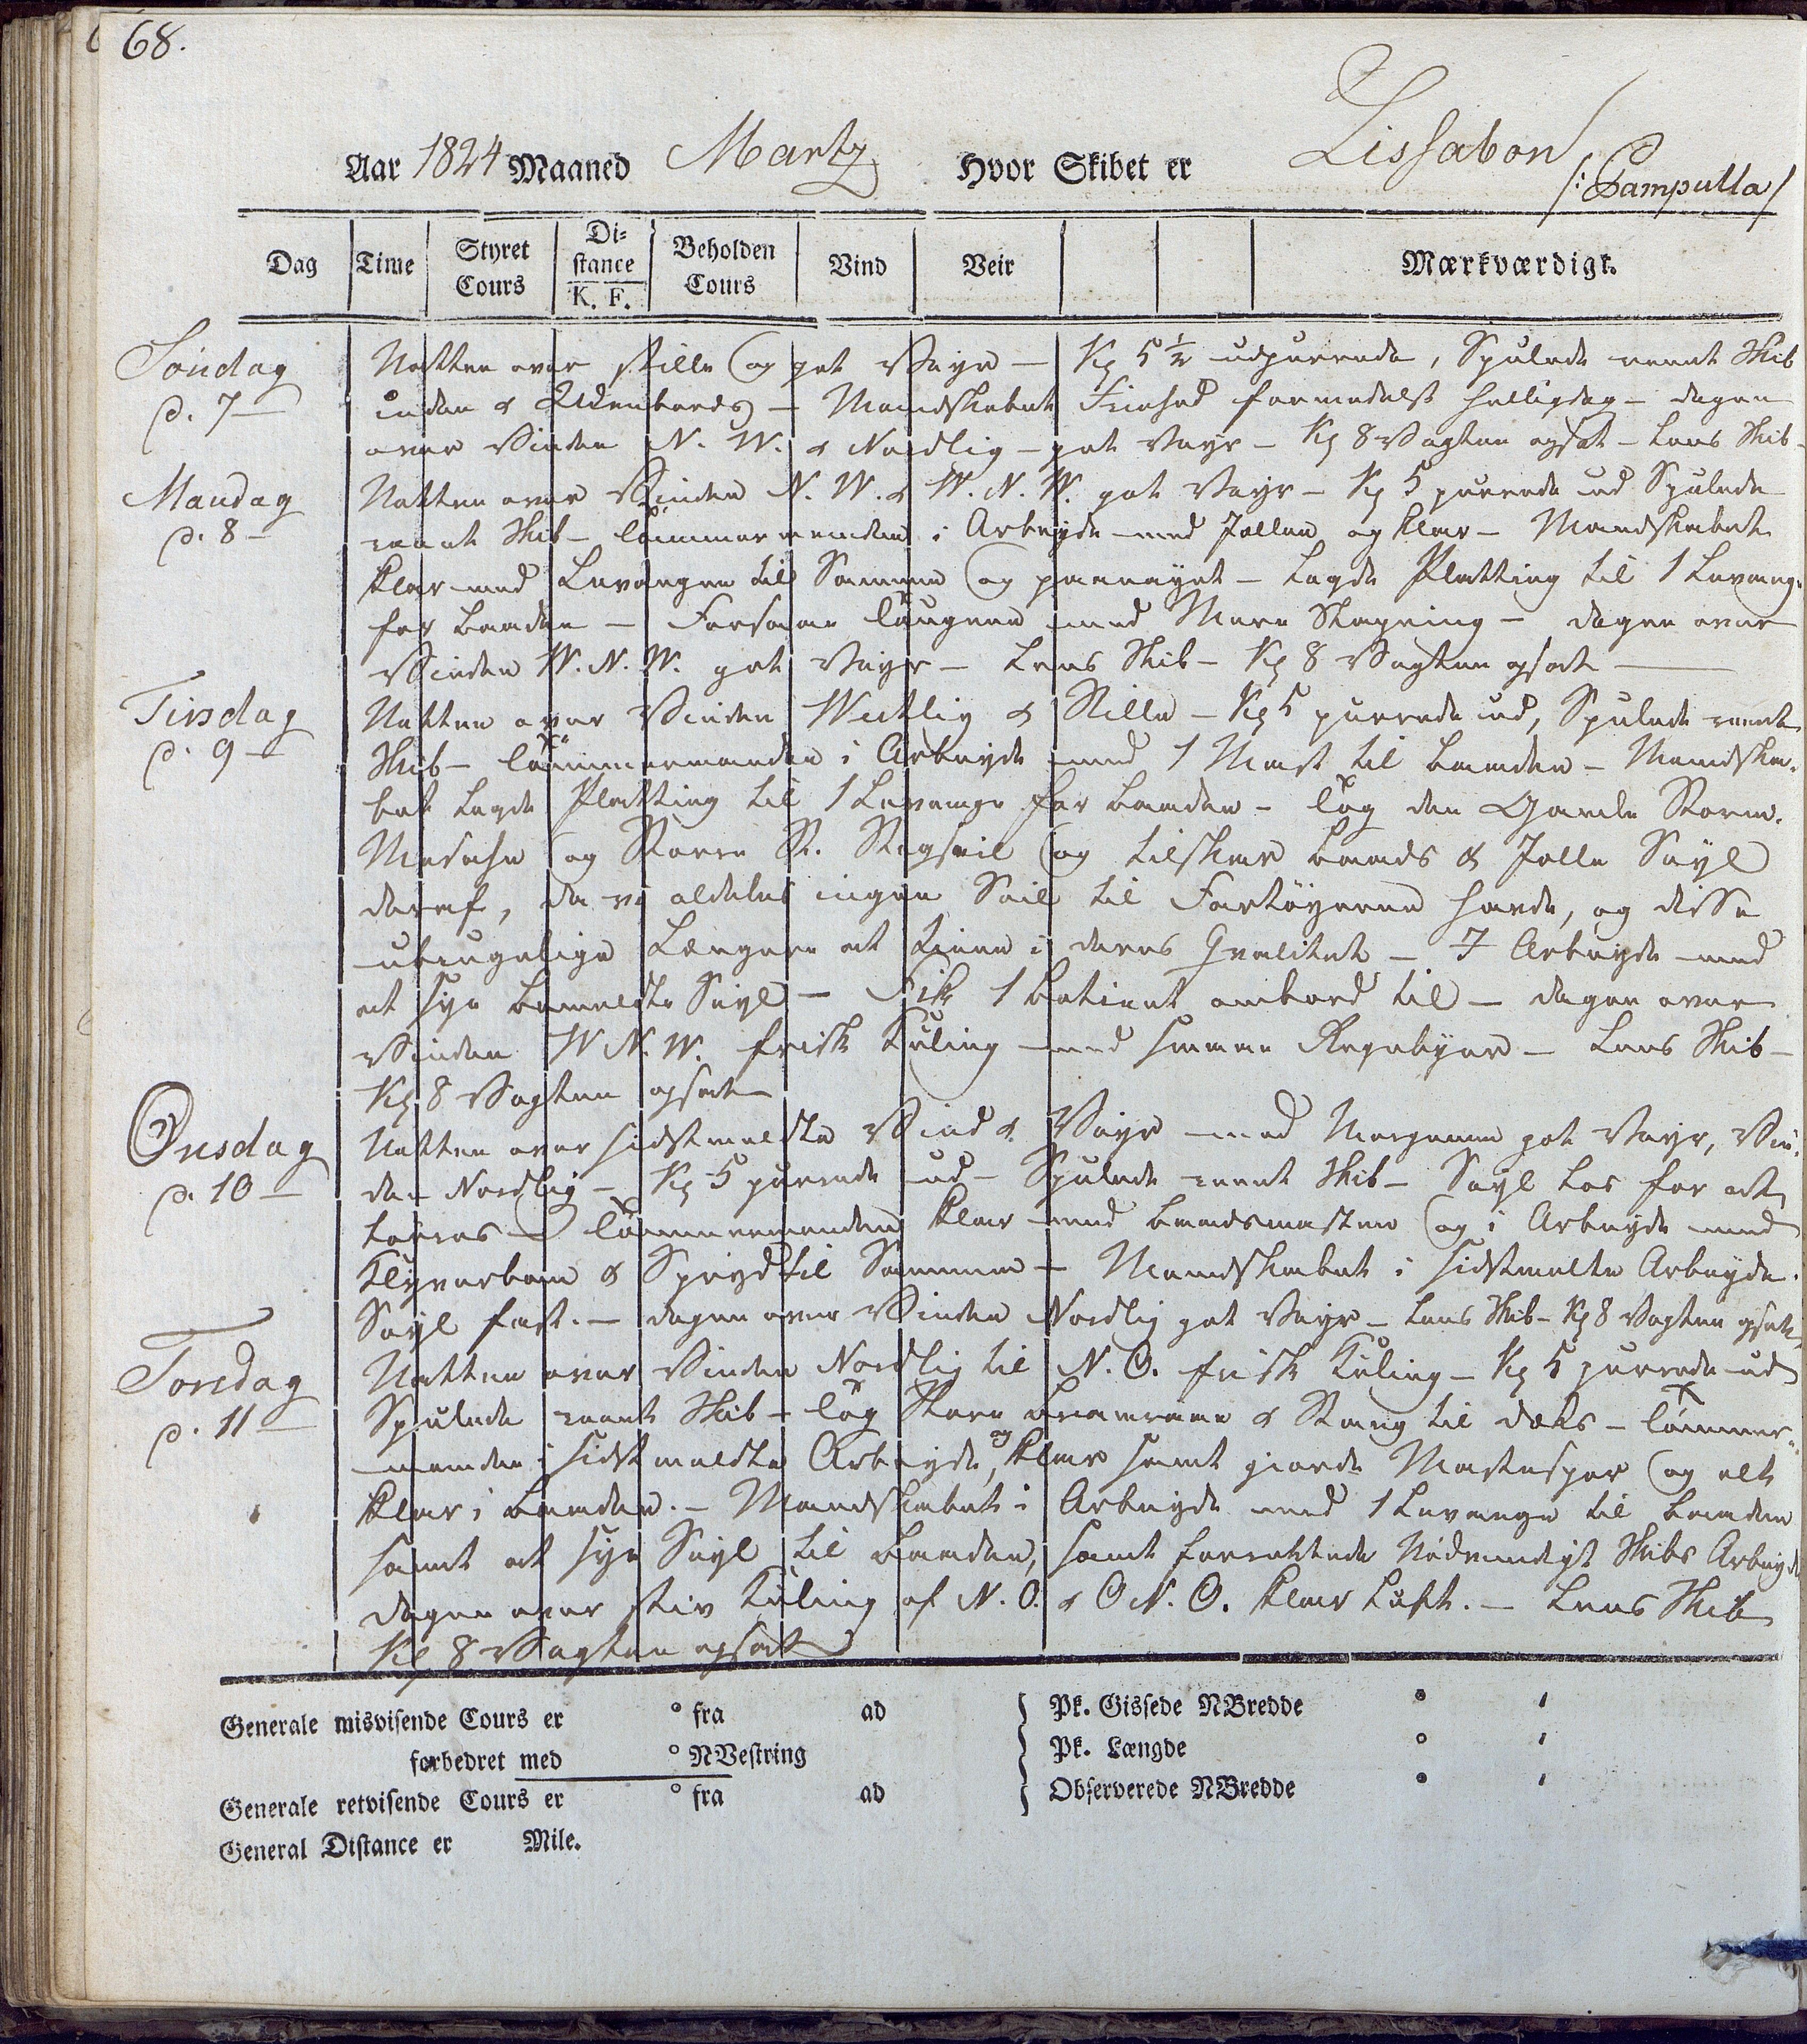 68.
Aar 1824 Maaned Martz Hvor Skibet er Lissabon
/: Pampulla /
Dag Time Styret Cours Di=stance K. F. Beholden Cours Vind Veir Mærkværdigt.
Søndag Natten over stille og got Veyr – Kl 5 ½ udpurrede, Spulede reent Skib
d. 7 – inden & Udenbords – Mandskabet Friehed formedelst helligdag – dagen
over Vinden N. W. & Nordlig – got Veyr – Kl 8 Vagten opsat – Lens Skib –
Mandag Natten over Vinden N. W. & W. N. W. got Veyr – Kl 5 purrede ud Spulede
d. 8 – reent Skib – Tömmermanden i Arbeyde med Jollen og klar – Mandskabet
klar med Løvangen til Samme og – Lagde Platting til 1 Løvang.
for Baaden – Forsaae Töugene med Mere Skapning – dagen over
Vinden W. N. W. got Veyr – Lens Skib – Kl 8 Vagten opsat –
Tirsdag Natten over Vinden Westlig & Stille – Kl 5 purrede ud, Spulede reent
d. 9 – Skib – Tömmermanden i Arbeyde med 1 Mast til Baaden – Mandska-
bet Lagde Platting til 1 Løvange for Baaden – Tog den Gamle Storm.
Mesahn og Store St. Stagseil og tilskar Baads & Jolle Seyl
deraf, da vi aldeles ingen Seil til Fartöyerne havde, og disse
ubrugelige Længere at tiene i deres Qvalitet – I Arbeyde med
at sye bemeldte Seyl – Fik 1 Patient ombord til – dagen over
Vinden W N. W. frisk Kuling med smaae Regnbyer – Lens Skib –
Kl 8 Vagten opsat
Onsdag Natten over sidstmeldte Vind & Veyr med Morgenen got Veyr, Vin-
d. 10 – den Nordlig – Kl 5 purrede ud – Spulede reent Skib – Seyl Los for at
törres – Tömmermanden klar med Baadsmasten og i Arbeyde med
Klyverbom & Spryd til Samme – Mandskabet i sidstmeldte Arbeyde.
Seyl fast. – dagen over Vinden Nordlig got Veyr – Lens Skib – Kl 8 Vagten opsat
Torsdag Natten over Vinden Nordlig til N. O. frisk Kuling – Kl 5 purrede ud
d. 11 – Spulede reent Skib – Tog Store Bramraae & Stang til Deks – Tömmer-
manden i sidstmeldte Arbeyde, og klar samt giorde Mastespor og alt
klar i Baaden. – Mandskabet i Arbeyde med 1 Løvange til Baaden
samt at sye Seyl til Baaden, samt forrettede Nödvendigt Skibs Arbeyde
dagen over stiv Kuling af N. O. & O N. O. klar Luft. – Lens Skib
Kl 8 Vagten opsat
Generale misvisende Cours er ° fra ad } Pk. Gissede NBredde ° '
forbedret med ° NVestring } Pk. Længde ° '
Generale retvisende Cours er ° fra ad } Observerede NBredde ° '
General Distance er Mile.